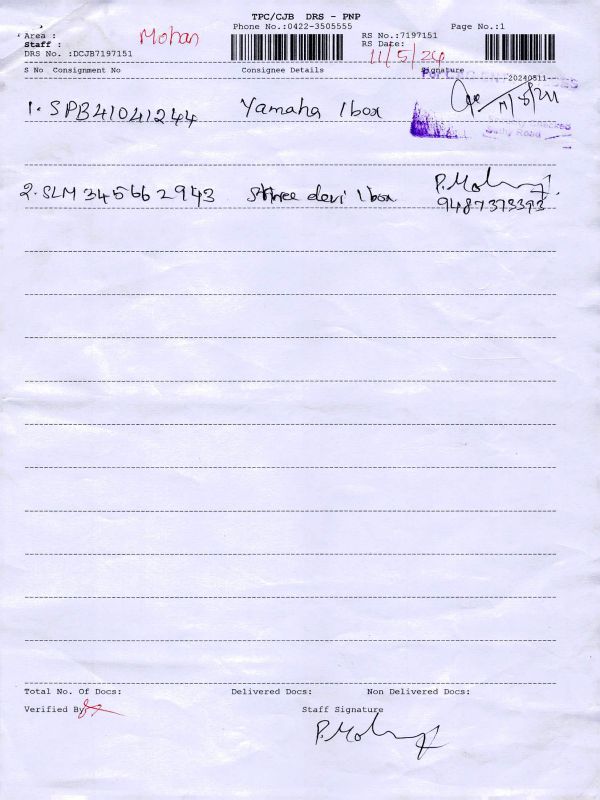 TPC/CJB DRS - PNP
Area : Mohan Phone No.:0422-3505555 Page No.:1
Staff : RS No.:7197151
DRS No. :DCJB7197151 RS Date: 11/5/24
S No Consignment No Consignee Details Signature
20240511
1. SPB41041244 Yamaha 1 box
Sathy Road
2. SLM 345662943 Sthree devi 1 box P. Mohan
9487373393
Total No. Of Docs: Delivered Docs: Non Delivered Docs:
Verified By: Staff Signature
P. Mohan